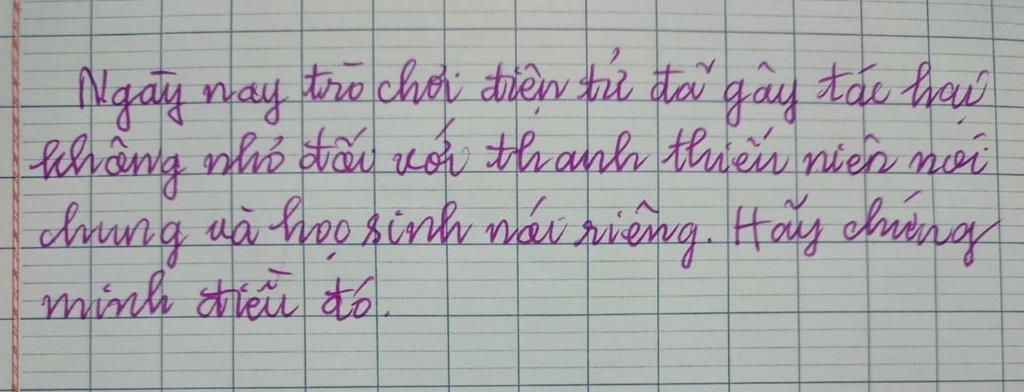 Ngày nay trò chơi điện tử đã gây tác hại
không nhỏ đối với thanh thiếu niên nói
chung và học sinh nói riêng. Hãy chứng
minh điều đó.